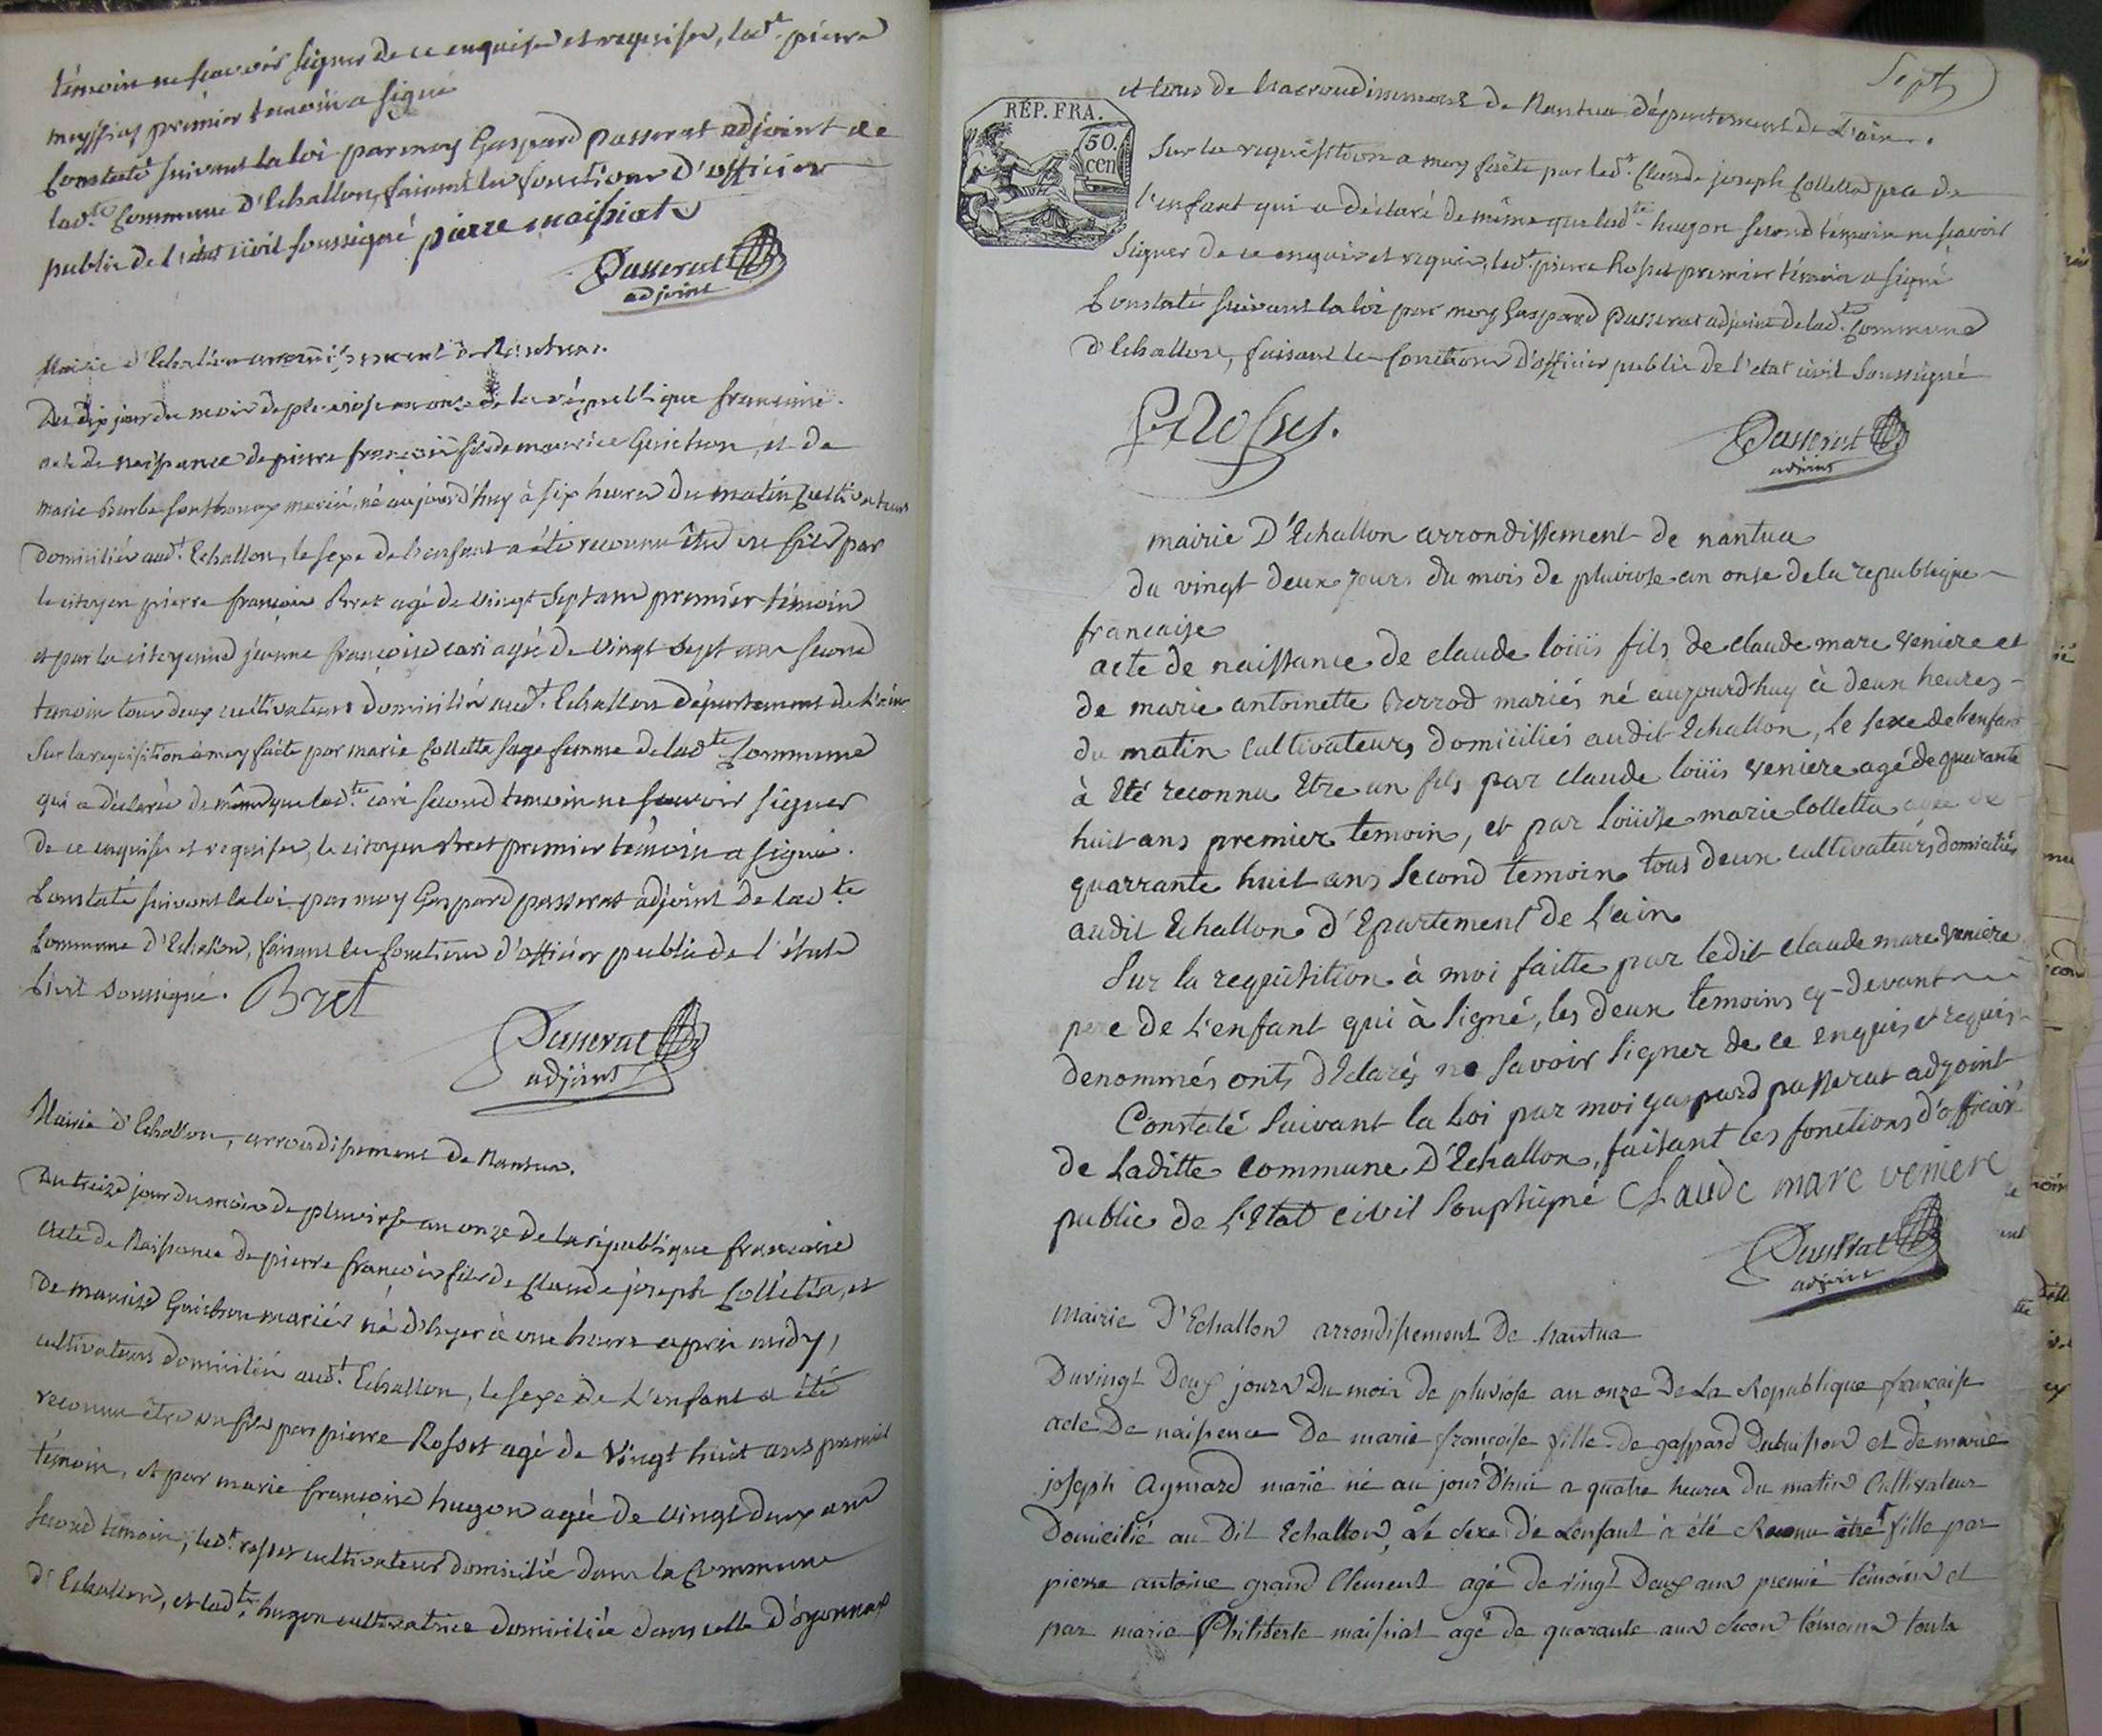 témoin ne scavoir signer de ce enquise et requise, led.t pierre
meyssiat prémier temoin a signé
Constaté suivant la loi par moy Gaspard Passerat adjoint de
lad.te Commune d'Echallon, faisant les fonctions d'officier
public de l'état civil soussigné pierre maissiat
Passerat
adjoint
Mairie d'Echallon arrondissement de Nantua.
Du dix jour du mois de pluviose an onze de la république francaise.
acte de naissance de pierre françois fils de maurice Guichon, et de
marie Barbe Sonthonax mariés, né aujourd'huy à six heures du matin Cultivateurs
domiciliés aud.t Echallon, le sexe de l'enfant a été reconnu être un fils par
le citoyen pierre françois Bret agé de vingt sept ans premier témoin
et par la citoyenne jeanne françoise cari agée de vingt sept ans second
temoin tous deux cultivateurs domiciliés aud.t Echallon département de L'ain
Sur la requisition à moy faite par marie Colletta sage femme de lad.te Commune
qui a déclarée de même que lad.te cari second temoin ne scavoir signer
de ce enquises et requises, le citoyen Bret premier témoin a signé.
Constaté suivant la loi par moy Gaspard passerat adjoint de lad.te
Commune d'Echallon, faisant les fonctions d'officier public de l'état
Civil soussigné. Bret
Passerat
adjoint
Mairie d'Echallon, arrondissement de Nantua.
Du treize jour du mois de pluviose an onze de la république francaise
acte de Naissance de pierre françois fils de Claude joseph Colletta, et
de maurize Guichon mariés né d'hyer à une heure après midy,
cultivateurs domiciliés aud.t Echallon, le sexe de L'enfant a été
reconnu être un fils par pierre Rosset agé de Vingt huit ans premier
témoin, et par marie françoise hugon agée de vingt deux ans
second temoin, led.t rosset cultivateur domicilié dans la Commune
d'Echallon, et lad.te hugon cultivatrice domiciliée dans celle d'oyonnax
Sept
et tous de l'arrondissement de Nantua département de L'ain.
RÉP. FRA.
50.
cen
Sur la requisition a moy faite par led.t Claude joseph Colletta pere de
l'enfant qui a déclaré de même que lad.te hugon second témoin ne scavoir
Signer de ce enquis et requis, led.t pierre Rosset premier témoin a signé
Constaté suivant la loi par moy Gaspard Passerat adjoint de lad.te Commune
d'Echallon, faisant les fonctions d'officier public de l'etat civil Soussigné
P Rosset.
Passerat
adjoint
mairie D'Echallon arrondissement de nantua
du vingt deux jours du mois de pluviose an onse de la republique
francaise
acte de naissance de claude loüis fils de claude marc veniere et
de marie antoinette Perrod mariés né aujourdhuy à deux heures
du matin cultivateurs domiciliés audit Echallon, Le sexe de l'enfant
à Eté reconnu Etre un fils par claude loüis veniere agé de quarante
huit ans premier temoin, et par Loüise marie Colletta agée de
quarrante huit ans Second temoin tous deux cultivateurs domiciliés
audit Echallon d'Epartement de L'ain
Sur la requisition à moi faitte par ledit claude marc veniere
pere de L'enfant qui à signé, les deux temoins cy-devant
denommés onts déclarés ne Savoir Signer de ce enquis et requis
Constaté Suivant la Loi par moi gaspard passerat adjoint
de Laditte commune D'Echallon, faisant les fonctions d'officier
public de L'Etat civil Souphigné Claude marc veniere
Passerat
adjoint
Mairie D'Echallon arrondissement De nantua
Du vingt Deux jours Du mois de pluviose an onze De La Republique francaise
acte De naissence De marie françoise fille de gaspard Dubuisson et de marie
joseph Aymard marié né au jour D'hui a quatre heures Du matin Cultivateur
Domicilié au Dit Echallon, Le sexe De Lenfant a été Reconu être fille par
pierre antoine grand Clement agé de vingt Deux ans premié témoin et
par marie Philiberte maissiat agé de quarante ans Secon témoin touts